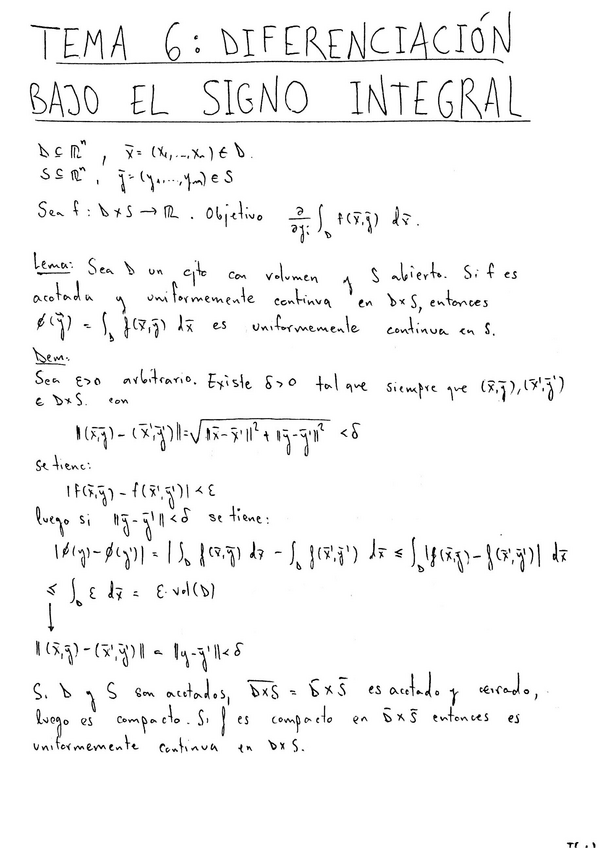 TEMA 6: DIFERENCIACIÓN
BAJO EL SIGNO INTEGRAL
D ⊆ ℝⁿ, x̄ = (x₁,...,xₙ) ∈ D.
S ⊆ ℝᵐ, ȳ = (y₁,...,yₘ) ∈ S
Sea f: D×S → ℝ. Objetivo ∂/∂yⱼ ∫_D f(x̄,ȳ) dx̄.
Lema: Sea D un cjto con volumen y S abierto. Si f es
acotada y uniformemente continua en D×S, entonces
ϕ(ȳ) = ∫_D f(x̄,ȳ) dx̄ es uniformemente continua en S.
Dem:
Sea ε>0 arbitrario. Existe δ>0 tal que siempre que (x̄,ȳ),(x̄',ȳ')
∈ D×S. con
||(x̄,ȳ) - (x̄',ȳ')|| = √(||x̄-x̄'||² + ||ȳ-ȳ'||²) < δ
se tiene:
|f(x̄,ȳ) - f(x̄',ȳ')| < ε
luego si ||ȳ-ȳ'|| < δ se tiene:
|ϕ(y)-ϕ(y')| = |∫_D f(x̄,ȳ) dx̄ - ∫_D f(x̄',ȳ') dx̄ ≤ ∫_D |f(x̄,ȳ) - f(x̄',ȳ')| dx̄
≤ ∫_D ε dx̄ = ε·vol(D)
↓
||(x̄,ȳ) - (x̄',ȳ')|| = ||y-ȳ'|| < δ
Si D y S son acotados, D̅×̅S̅ = D̄×S̄ es acotado y cerrado,
luego es compacto. Si f es compacto en D̄×S̄ entonces es
uniformemente continua en D×S.